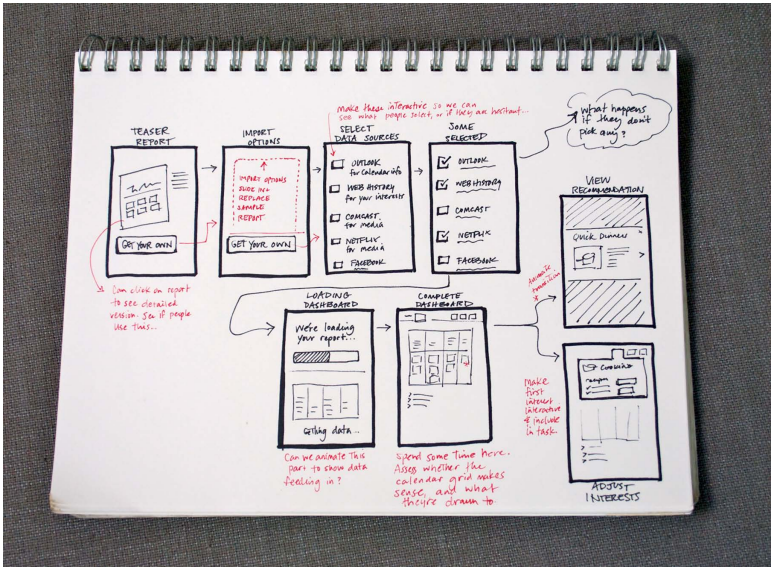 TEASER
REPORT
GET YOUR OWN
Can click on report
to see detailed
version. See if people
use this...
IMPORT
OPTIONS
IMPORT OPTIONS
SLIDE IN &
REPLACE
SAMPLE
REPORT
GET YOUR OWN
Make these interactive so we can
see what people select, or if they are hesitant...
SELECT
DATA SOURCES
OUTLOOK
for calendar info
WEB HISTORY
for your interests
COMCAST
for media
NETFLIX
for media
FACEBOOK
SOME
SELECTED
OUTLOOK
WEB HISTORY
COMCAST
NETFLIX
FACEBOOK
What happens
if they don't
pick any?
LOADING
DASHBOARD
We're loading
your report...
Getting data...
Can we animate this
part to show data
feeding in?
COMPLETE
DASHBOARD
Spend some time here.
Assess whether the
calendar grid makes
sense, and what
they're drawn to
VIEW
RECOMMENDATION
Quick Dinners
Animate
transition
Make
first
interest
interactive
& include
in task.
Cooking
ADJUST
INTERESTS